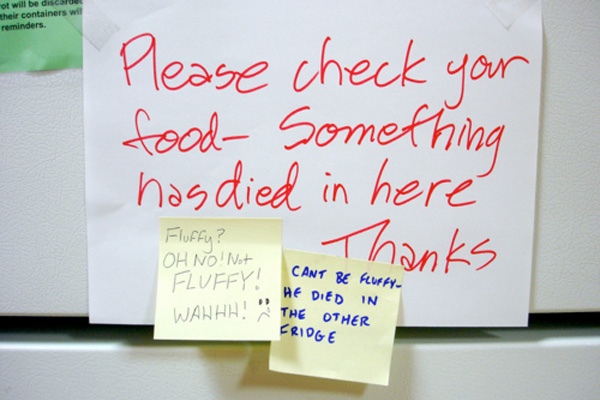 ot will be discarded
their containers wil
reminders.
Please check your
food- Something
has died in here
Thanks
Fluffy?
OH NO! Not
FLUFFY!
WAHHH! :(
CANT BE FLUFFY-
HE DIED IN
THE OTHER
FRIDGE